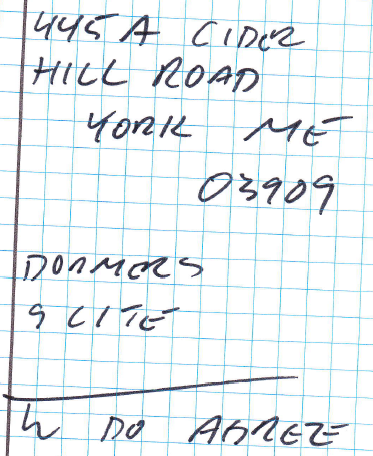 445A CIDER
HILL ROAD
YORK ME
03909
DORMERS
9 LITE
DO AGREE